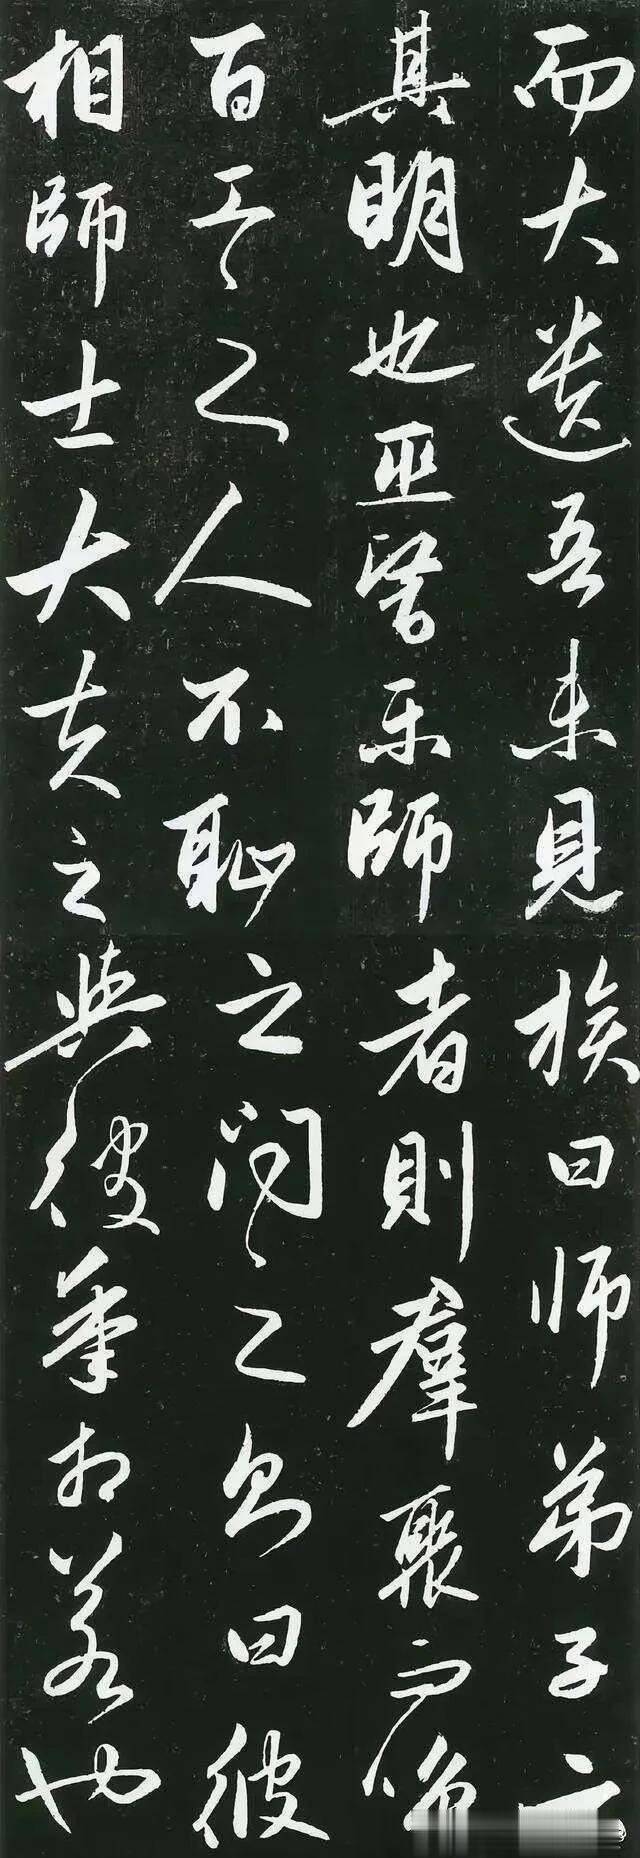 而大遺吾未見
其明也巫醫乐師
百工之人不恥
相師士大夫之
族曰师弟子云
者則羣聚而咲
之問之則曰彼
與彼年相若也